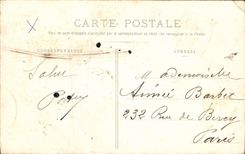 CARTE POSTALE
CORRESPONDANCE
ADRESSE
Salut
Mademoiselle
Aimée Barbet
232 Rue de Bercy
Paris